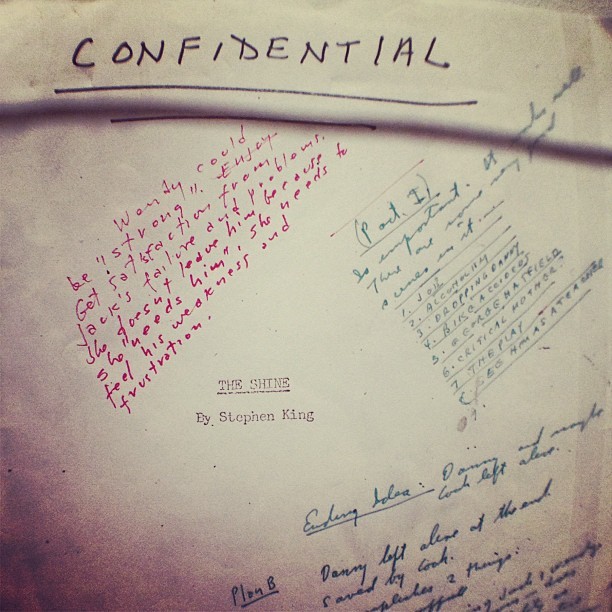 CONFIDENTIAL
Wendy could
be "strong". Enjoy.
Get satisfaction from
Jack's failure and problems.
She doesn't leave him because
she "needs him", she needs to
feel his weakness and
frustration.
(Part I)
Is important. It
There are some very good
scenes in it
1. JOB
2. ALCOHOLISM
3. DROPPING DANNY
4. BIKE ACCIDENT
5. GEORGE HATFIELD
6. CRITICAL MOTHER
7. THE PLAY
AS A TEACHER
9.
THE SHINE
By Stephen King
Ending Idea: Danny and maybe
Cook left alive.
Plan B
Danny left alive at the end.
Saved by Cook.
2 things: